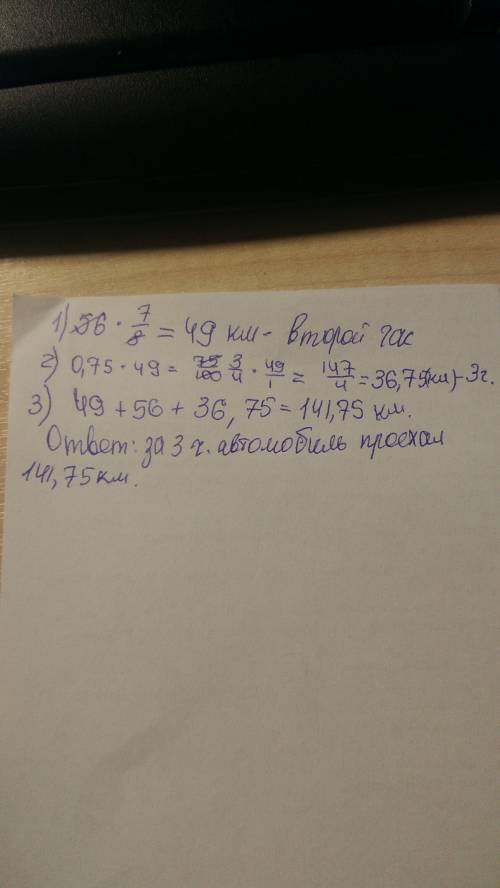 1) 56 · 7/8 = 49 км - второй час
2) 0,75 · 49 = 75/100 3/4 · 49/1 = 147/4 = 36,75(км)-3ч.
3) 49 + 56 + 36,75 = 141,75 км.
Ответ: за 3 ч. автомобиль проехал
141,75 км.